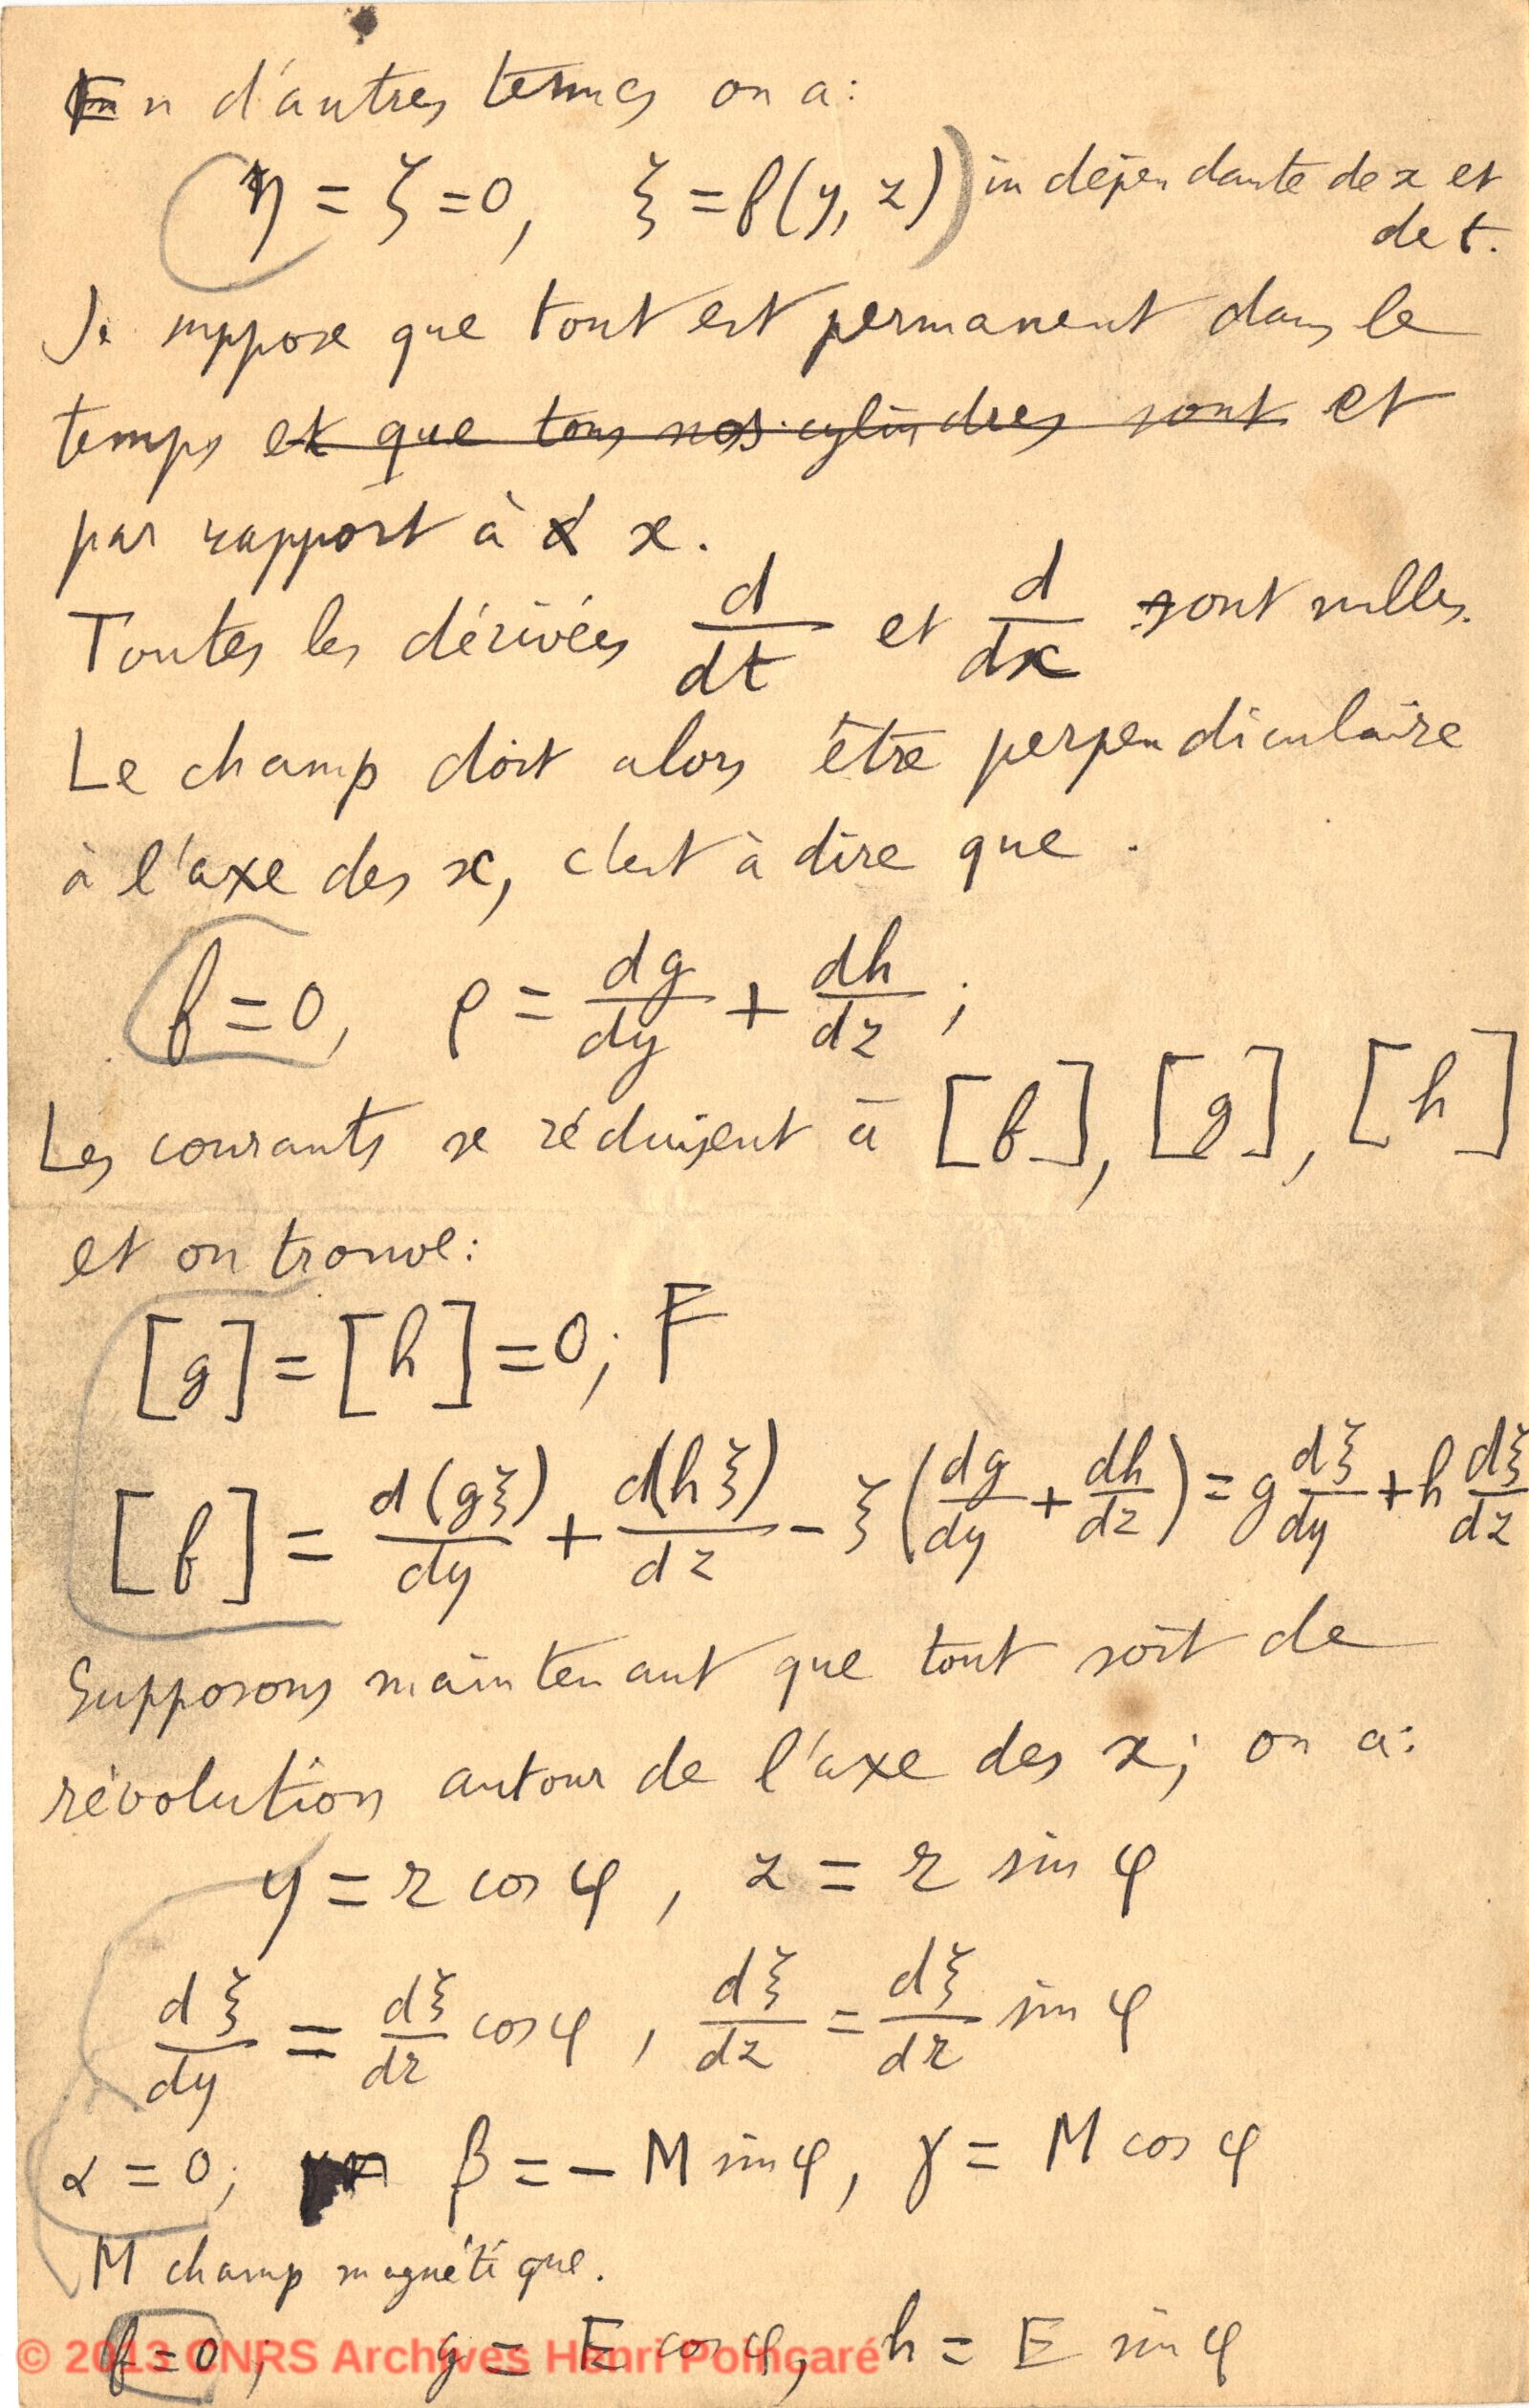 En d'autres termes on a:
η = ζ = 0, ξ = f(y, z)) indépendante de x et
de t.
Je suppose que tout est permanent dans le
temps et que tous nos cylindres sont et
par rapport à x.
Toutes les dérivées d/dt et d/dx sont nulles.
Le champ doit alors être perpendiculaire
à l'axe des x, c'est à dire que
f = 0, ρ = dg/dy + dh/dz ;
Les courants se réduisent à [f], [g], [h]
et on trouve:
[g] = [h] = 0; F
[f] = d(gξ)/dy + d(hξ)/dz - ξ(dg/dy + dh/dz) = g dξ/dy + h dξ/dz
Supposons maintenant que tout soit de
révolution autour de l'axe des x; on a:
y = r cos φ, z = r sin φ
dξ/dy = dξ/dr cos φ, dξ/dz = dξ/dr sin φ
α = 0; β = - M sin φ, γ = M cos φ
M champ magnétique.
f = 0; g = E cos φ, h = E sin φ
© 2013 CNRS Archives Henri Poincaré